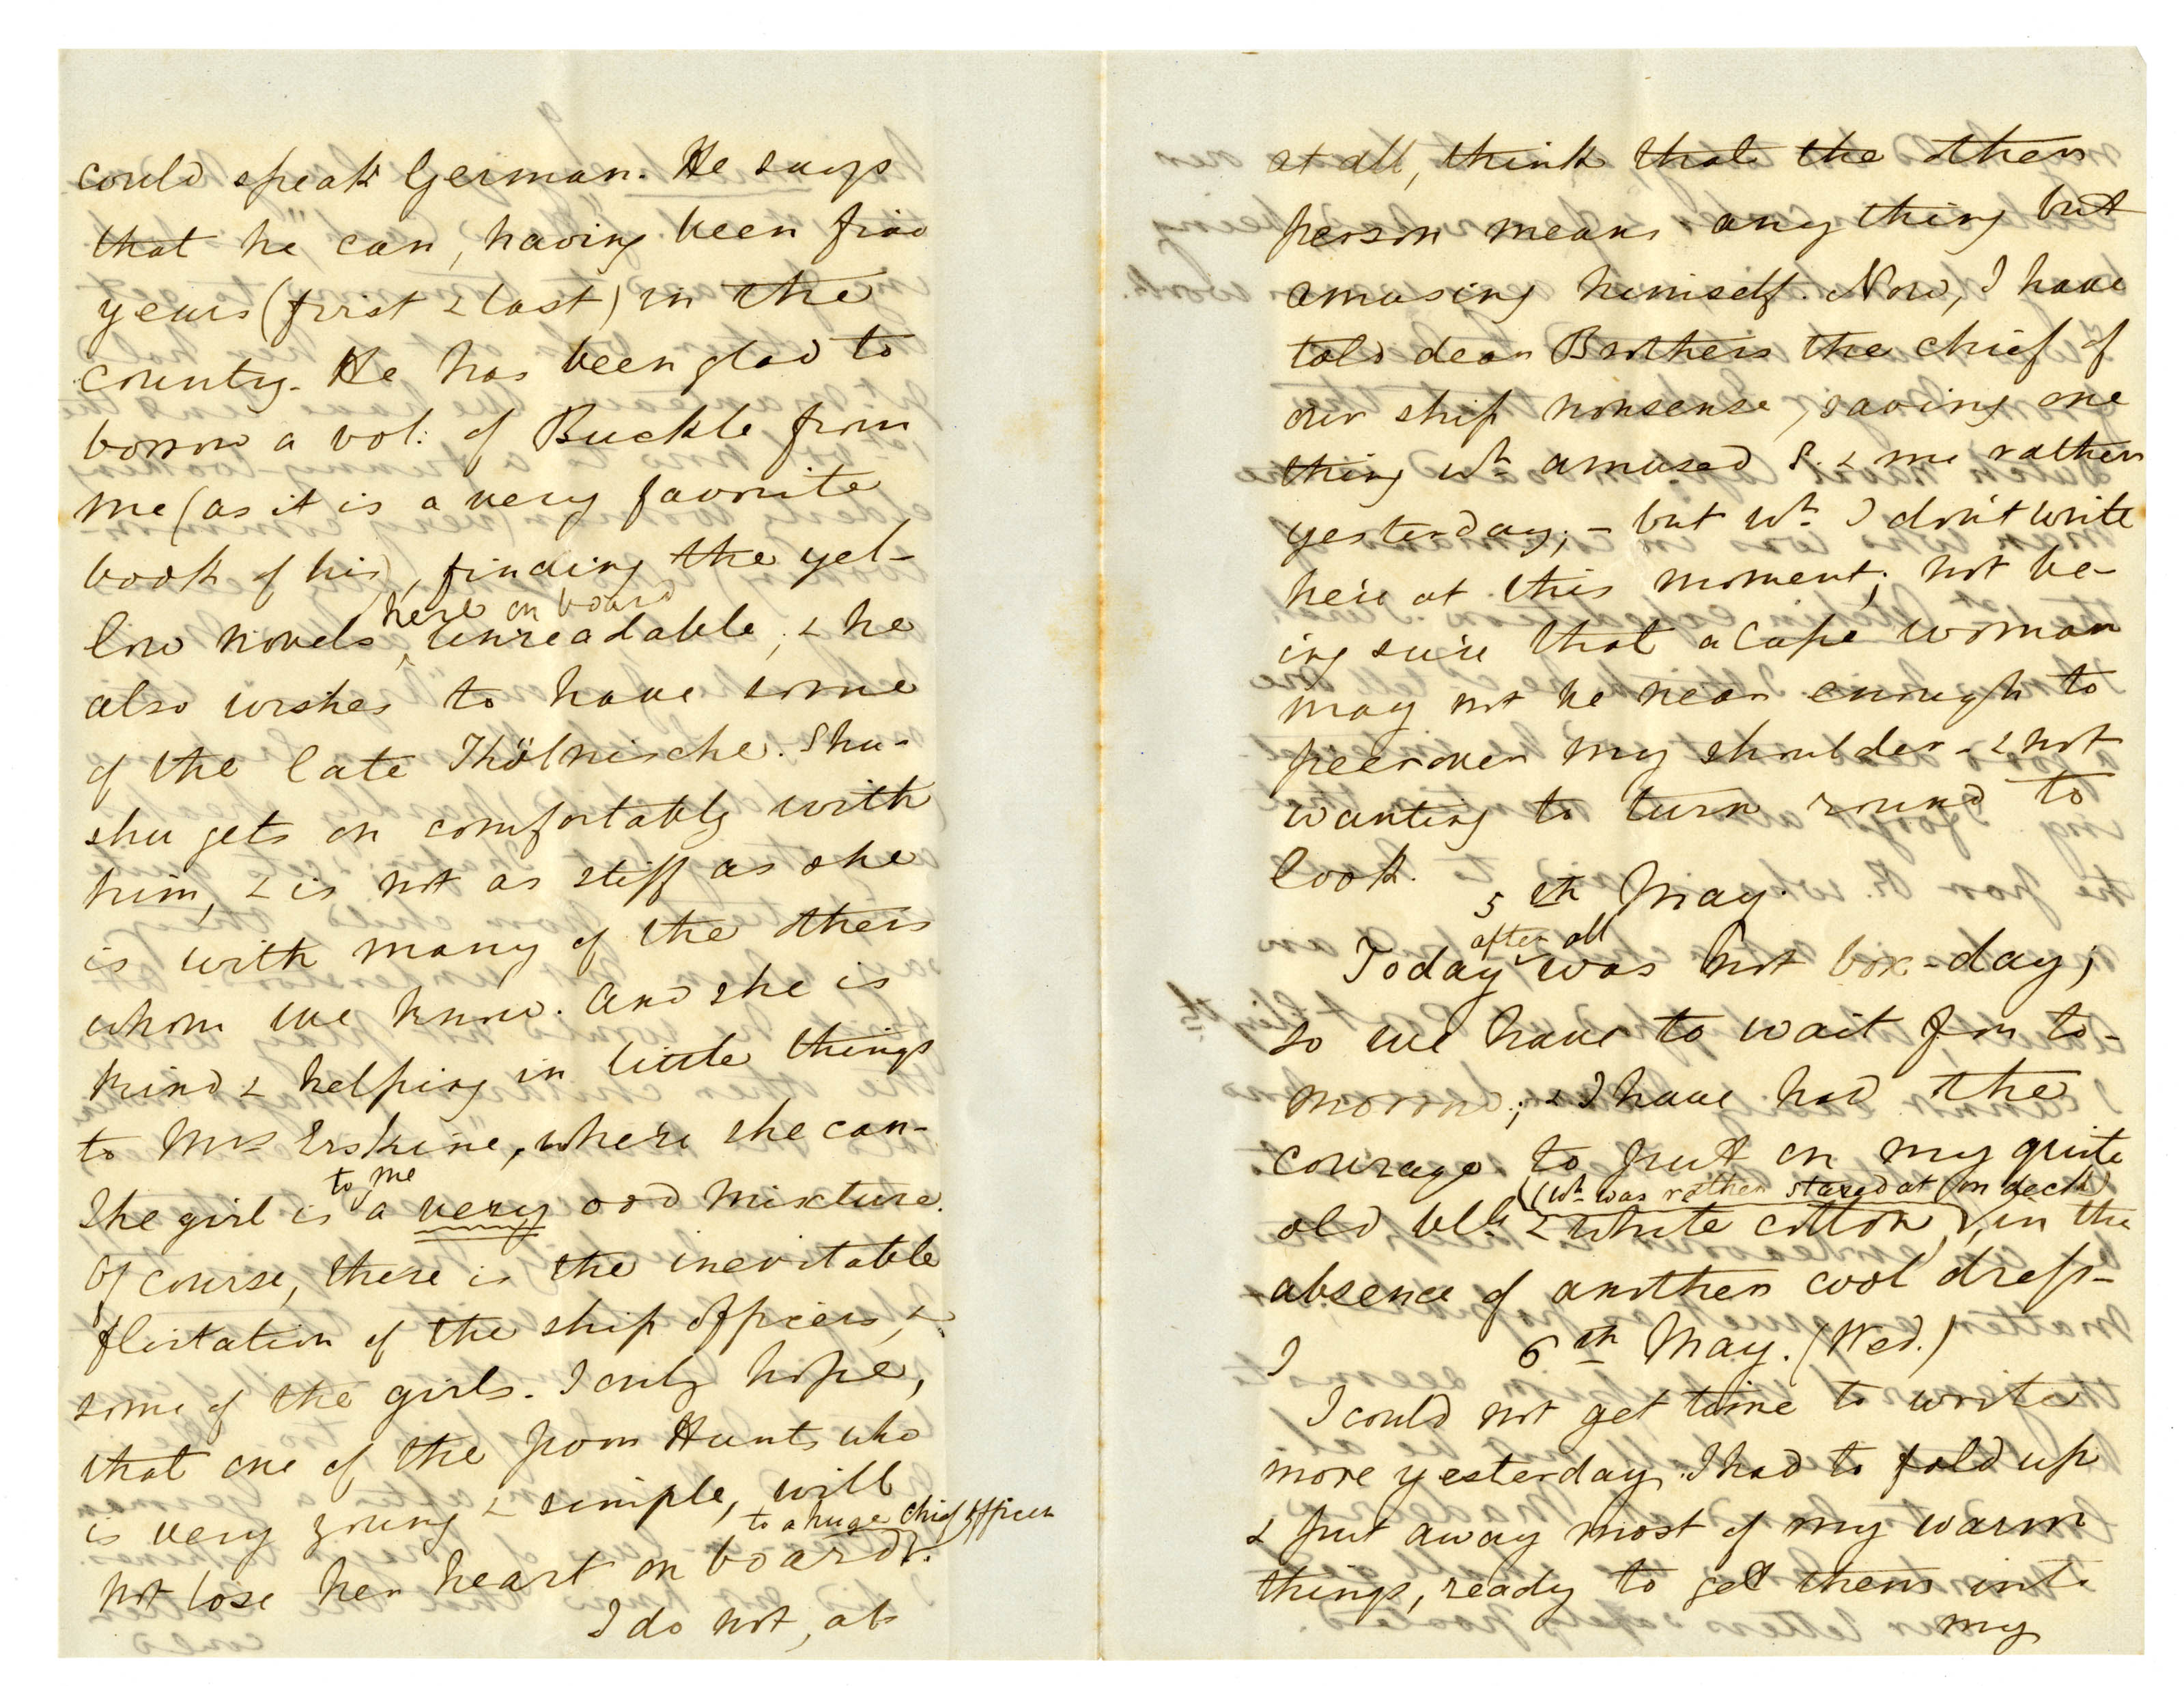 could speak German. He says
that he can, having been five
years (first & last) in the
country. He has been glad to
borrow a vol: of Buckle from
me (as it is a very favorite
book of his), finding the yel-
low novels here on board unreadable; & he
also wishes to have some
of the late Kölnische. Shu-
shu gets on comfortably with
him, & is not as stiff as she
is with many of the others
whom we know. And she is
kind & helping in little things
to Mrs Erskine, where she can-
The girl is to me a very odd mixture.
Of course, there is the inevitable
flirtation of the ship officers, &
some of the girls. I only hope,
that one of the poor Hunts who
is very young & simple, will
not lose her heart on board to a huge chief officer.
I do not, at
at all, think that the other
person means any thing but
amusing himself. Now, I have
told dear Brothers the chief of
our ship nonsense, saving one
thing wh. amused S. & me rather
yesterday; - but wh. I don't write
here at this moment; not be-
ing sure that a Cape woman
may not be near enough to
peer over my shoulder - & not
wanting to turn round to
look.
5th May.
Today after all was not box-day;
so we have to wait for to-
morrow; & I have had the
courage to put on my quite
old blk & white cotton (wh. was rather stared at on deck), in the
absence of another cool dress-
I
6th May. (Wed.)
I could not get time to write
more yesterday. I had to fold up
& put away most of my warm
things, ready to get them into
my